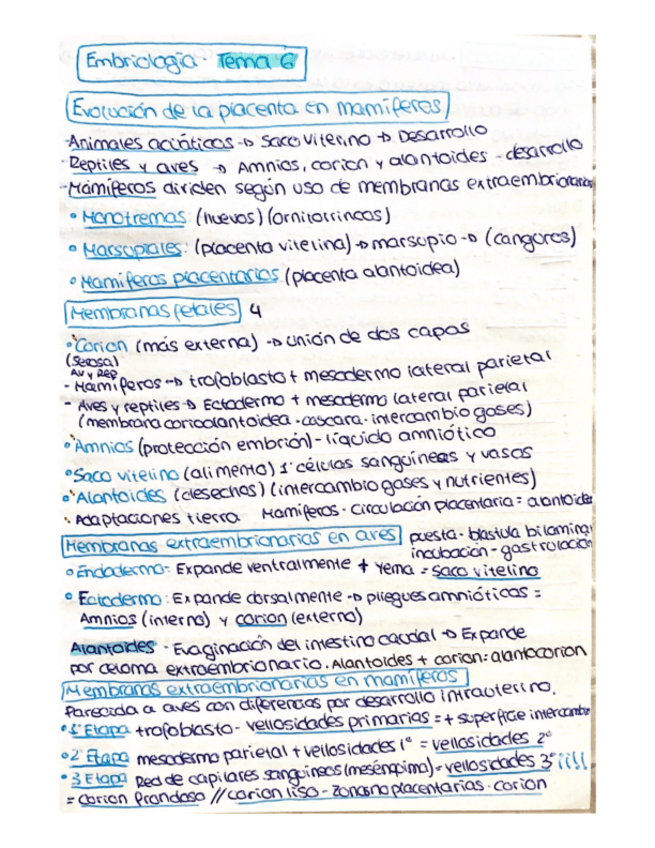 Embriología · Tema 6
Evolución de la placenta en mamíferos
-Animales acuáticos → Saco Vitelino → Desarrollo
-Reptiles y aves → Amnios, corion y alantoides - desarrollo
-Mamíferos dividen según uso de membranas extraembrionarias
• Monotremas: (huevos) (ornitorrincos)
• Marsupiales: (placenta vitelina) → marsupio → (canguros)
• Mamíferos placentarios (placenta alantoidea)
Membranas fetales 4
• Corion (más externa) → unión de dos capas
(serosa)
Av y Rep
- Mamíferos → trofoblasto + mesodermo lateral parietal
- Aves y reptiles → Ectodermo + mesodermo lateral parietal
(membrana corioalantoidea · cascara · intercambio gases)
• Amnios (protección embrión) - líquido amniótico
• Saco vitelino (alimento) 1ª células sanguíneas y vasos
• Alantoides (desechos) (intercambio gases y nutrientes)
· Adaptaciones tierra Mamíferos · Circulación placentaria = alantoides
Membranas extraembrionarias en aves puesta · blastula bilaminar
incubación - gastrulación
• Endodermo: Expande ventralmente + yema = saco vitelino
• Ectodermo: Expande dorsalmente → pliegues amnióticos =
Amnios (interno) y corion (externo)
Alantoides · Evaginación del intestino caudal → Expande
por celoma extraembrionario. Alantoides + corion = alantocorion
Membranas extraembrionarias en mamíferos
Parecida a aves con diferencias por desarrollo intrauterino.
• 1ª Etapa trofoblasto - vellosidades primarias = + superficie intercambio
• 2ª Etapa mesodermo parietal + vellosidades 1ª = vellosidades 2ª
• 3 Etapa Red de capilares sanguíneos (mesénquima) = vellosidades 3ª ¡¡¡!
= corion frondoso // corion liso - zonas no placentarias · corion